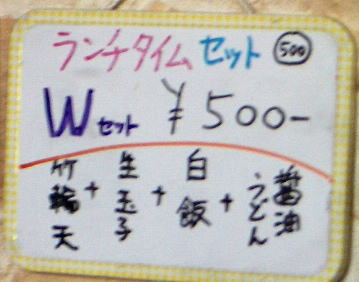 ランチタイムセット 500
Wセット ¥500-
竹輪天+生玉子+白飯+醤油うどん